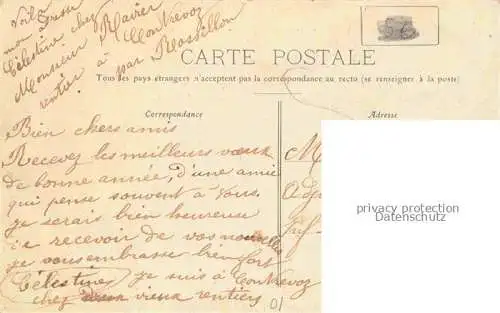 Voila
mon adresse
Célestine chez
Monsieur Ravier
rentier à Contrevoz
par Rossillon
CARTE POSTALE
Tous les pays étrangers n'acceptent pas la correspondance au recto (se renseigner à la poste)
Correspondance
Adresse
Bien chers amis
Recevez les meilleurs vœux
de bonne année, d'une amie
qui pense souvent à vous.
je serais bien heureuse
de recevoir de vos nouvelles
je vous embrasse bien fort
Célestine je suis à Contrevoz
chez deux vieux rentiers
M
Adj
Inf
privacy protection
Datenschutz
01